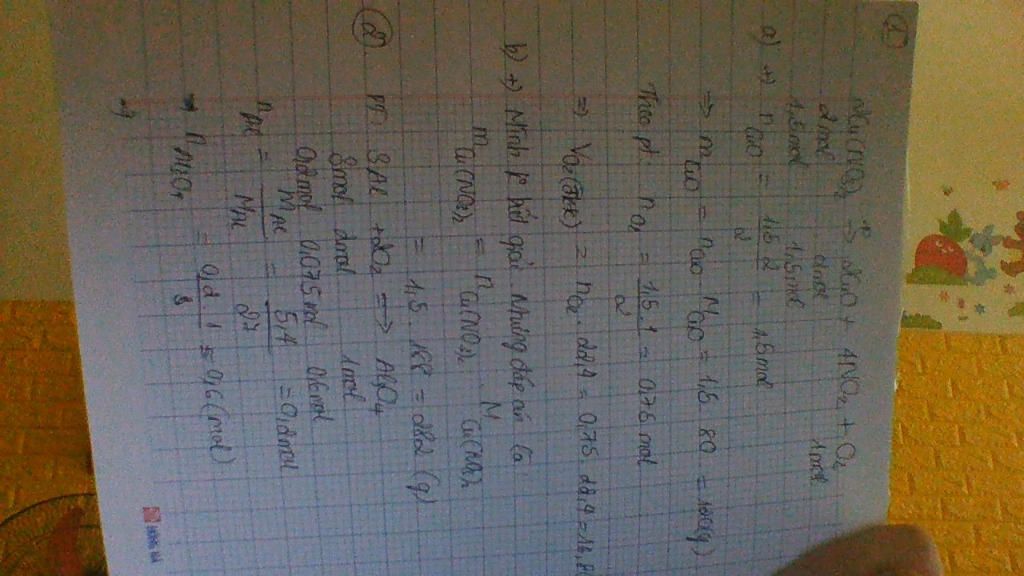 1
2Cu(NO3)2 t° → 2CuO + 4NO2 + O2
2mol 2mol 1mol
1,5mol 1,5mol
a) +) nCuO = 1,5 . 2 / 2 = 1,5mol
=> mCuO = nCuO MCuO = 1,5 80 = 120(g)
Theo pt: nO2 = 1,5 . 1 / 2 = 0,75 mol
=> VO2(đktc) = nO2 . 22,4 = 0,75 . 22,4 = 16,8(
b) +) Mình k biết giải. Nhưng đáp án là
mCu(NO3)2 = nCu(NO3)2 M Cu(NO3)2
= 1,5 . 188 = 282 (g)
2 PT 3Al + 2O2 => Al3O4
3mol 2mol 1mol
0,2mol 0,075mol 0,6mol
nAl = MAl / MAl = 5,4 / 27 = 0,2mol
= 0,2 . 1 / 3 = 0,6(mol)